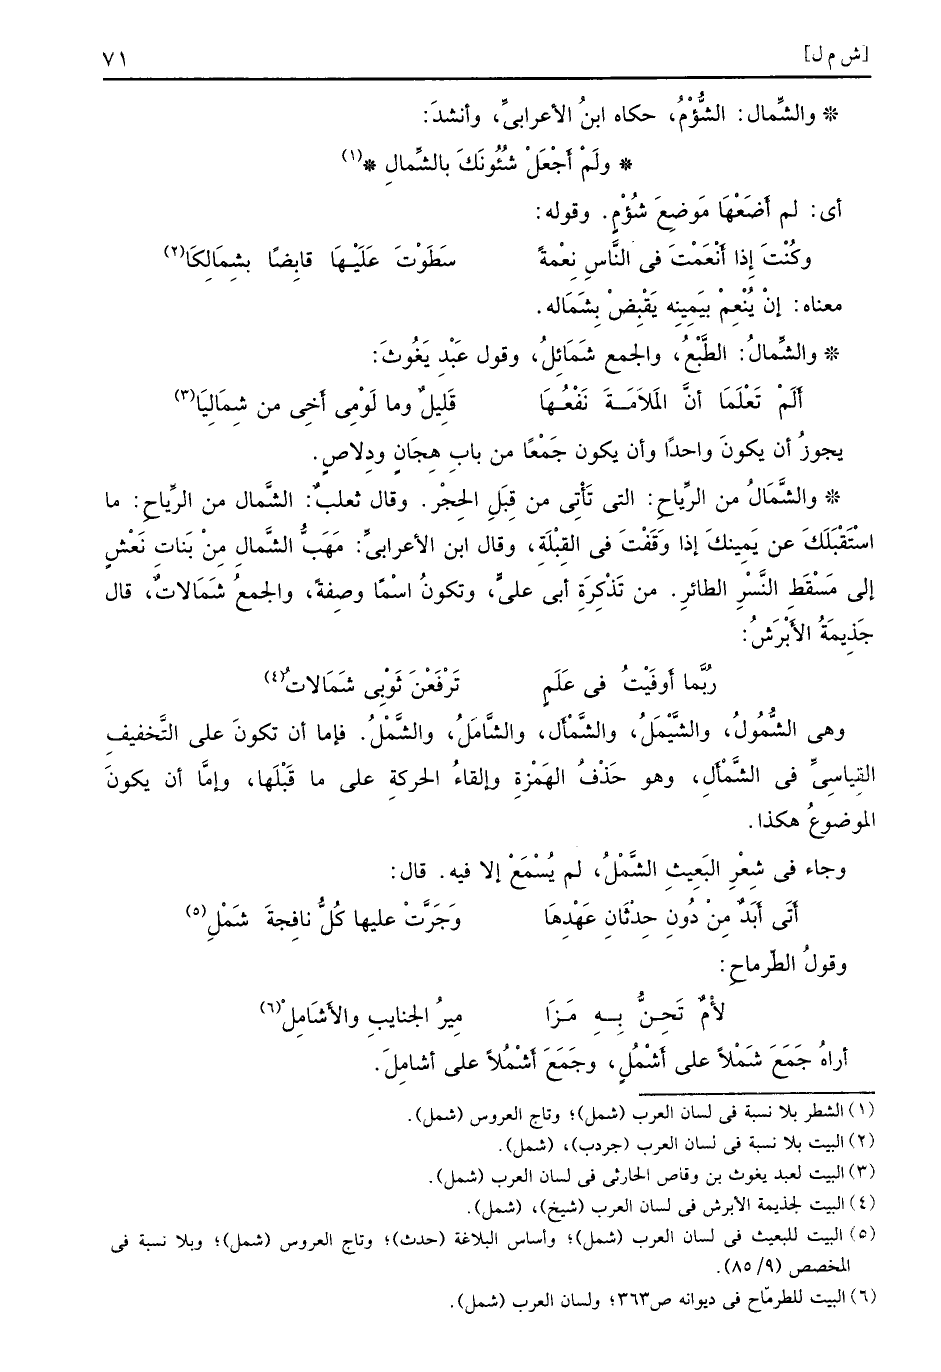 [ش م ل] ٧١
* والشِّمال: الشُّؤْمُ، حكاه ابنُ الأعرابىِّ، وأنشدَ:
* ولَمْ أَجْعَلْ شُئُونَكَ بالشِّمالِ *(١)
أى: لم أضَعْهَا مَوضِعَ شُؤْمٍ. وقوله:
وكُنْتَ إِذا أَنْعَمْتَ فى النَّاسِ نِعْمةً سَطَوْتَ عَلَيْـهَا قابِضًا بشِمالِكَا(٢)
معناه: إنْ يُنْعِمْ بيَمِينِه يَقْبِضْ بِشَمَاله.
* والشِّمالُ: الطَّبْعُ، والجمع شَمَائلُ، وقول عَبْدِ يَغُوثَ:
أَلَمْ تَعْلَمَا أنَّ المَلاَمَــةَ نَفْعُـهَا قَلِيلٌ وما لَوْمِى أَخِى من شِمالِيَا(٣)
يجوزُ أن يكونَ واحدًا وأن يكون جَمْعًا من بابِ هِجَانٍ ودِلاصٍ.
* والشَّمَالُ من الرِّياحِ: التى تَأْتِى من قِبَلِ الحِجْرِ. وقال ثعلبٌ: الشَّمال من الرِّياحِ: ما
اسْتَقْبَلَكَ عن يَمِينكَ إذا وَقَفْتَ فى القِبْلَةِ، وقال ابن الأعرابىِّ: مَهَبُّ الشَّمالِ مِنْ بَنَاتِ نَعْشٍ
إلى مَسْقَطِ النَّسْرِ الطائرِ. من تَذْكِرَةِ أبى علىٍّ، وتكونُ اسْمًا وصفةً، والجمعُ شَمَالاتٌ، قال
جَذِيمَةُ الأَبْرَشُ:
رُبَّما أَوفَيْتُ فى عَلَمٍ تَرْفَعْنَ ثَوْبِى شَمَالاتُ(٤)
وهى الشُّمُولُ، والشَّيْمَلُ، والشَّمْأَل، والشَّامَلُ، والشَّمْلُ. فإما أن تكونَ على التَّخفيفِ
القِياسىِّ فى الشَّمْأَلِ، وهو حَذْفُ الهَمْزةِ وإلقاءُ الحركةِ على ما قَبْلَها، وإمَّا أن يكونَ
الموضوعُ هكذا.
وجاء فى شِعْرِ البَعِيثِ الشَّمْلُ، لم يُسْمَعْ إلا فيه. قال:
أَتَى أَبَدٌ مِنْ دُونِ حِدْثَانِ عَهْدِهَا وَجَرَّتْ عليها كُلُّ نافِجةَ شَمْلِ(٥)
وقولُ الطّرماحِ:
لأْمٌ تَحِـنُّ بِــهِ مَـزَا مِيرُ الجنايبِ والأَشَامِلْ(٦)
أراهُ جَمَعَ شَمْلاً على أَشْمُلٍ، وجَمَعَ أَشْمُلاً على أشامِلَ.
(١) الشطر بلا نسبة فى لسان العرب (شمل)؛ وتاج العروس (شمل).
(٢) البيت بلا نسبة فى لسان العرب (جردب)، (شمل).
(٣) البيت لعبد يغوث بن وقاص الحارثى فى لسان العرب (شمل).
(٤) البيت لجذيمة الأبرش فى لسان العرب (شيخ)، (شمل).
(٥) البيت للبعيث فى لسان العرب (شمل)؛ وأساس البلاغة (حدث)؛ وتاج العروس (شمل)؛ وبلا نسبة فى
المخصص (٩/ ٨٥).
(٦) البيت للطرمّاح فى ديوانه ص٣٦٣؛ ولسان العرب (شمل).